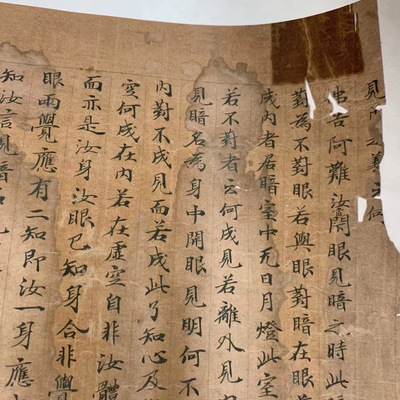 見內之義云何
佛告阿難汝閉眼見暗之時此暗
對為不對眼若與眼對暗在眼
成內者居暗室中无日月燈此室
若不對者云何成見若離外見
見暗名為身中開眼見明何不
內對不成見而若成此了知心及
空何成在內若在虛空自非汝體
而亦是汝身汝眼已知身合非覺
眼兩覺應有二知即汝一身應
知汝言見暗